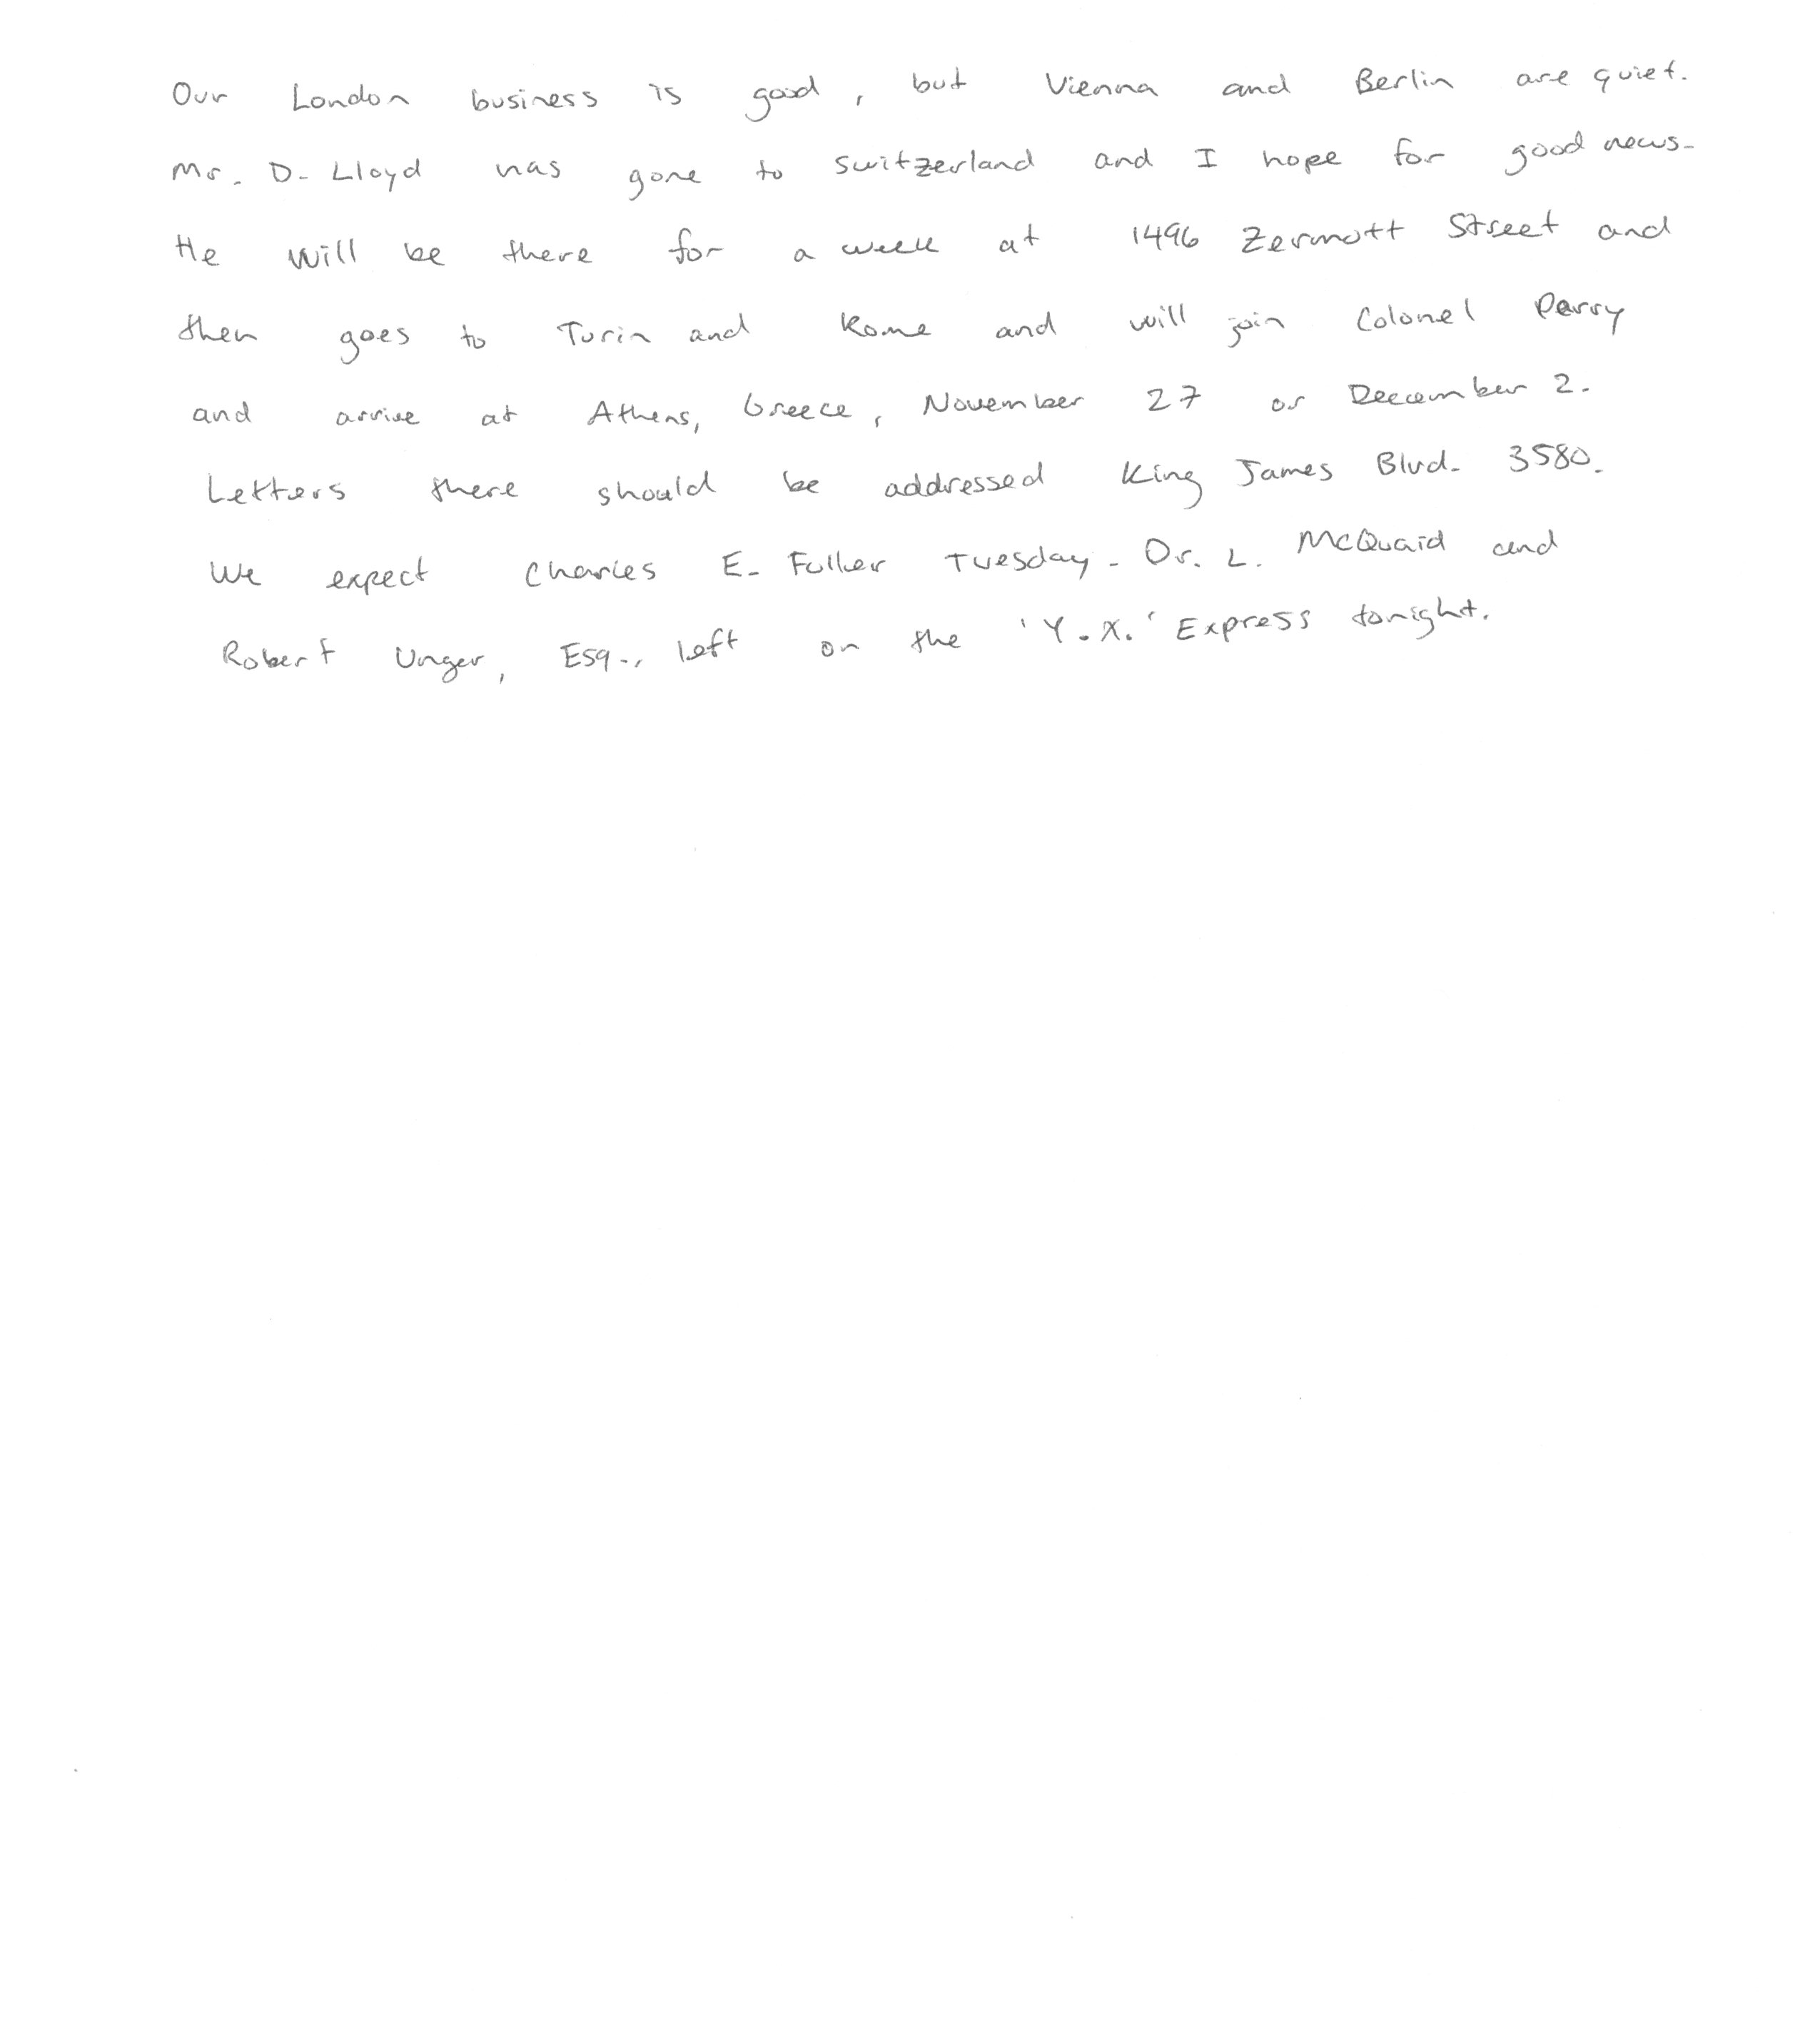 Our London business is good, but Vienna and Berlin are quiet.
Mr. D. Lloyd has gone to Switzerland and I hope for good news.
He will be there for a week at 1496 Zermott Street and
then goes to Turin and Rome and will join Colonel Parry
and arrive at Athens, Greece, November 27 or December 2.
Letters there should be addressed King James Blvd. 3580.
We expect Charles E. Fuller Tuesday. Dr. L. McQuaid and
Robert Unger, Esq., left on the 'Y.X.' Express tonight.